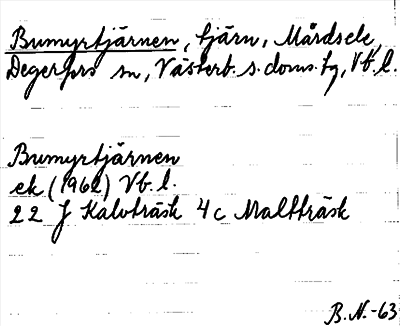 Bumyrtjärnen, tjärn, Mårdsele,
Degerfors sn, Västerb. s. doms. tg, Vb. l.
Bumyrtjärnen
ek (1962) Vb. l.
22 J Kalvträsk 4 c Maltträsk
B. N. -63